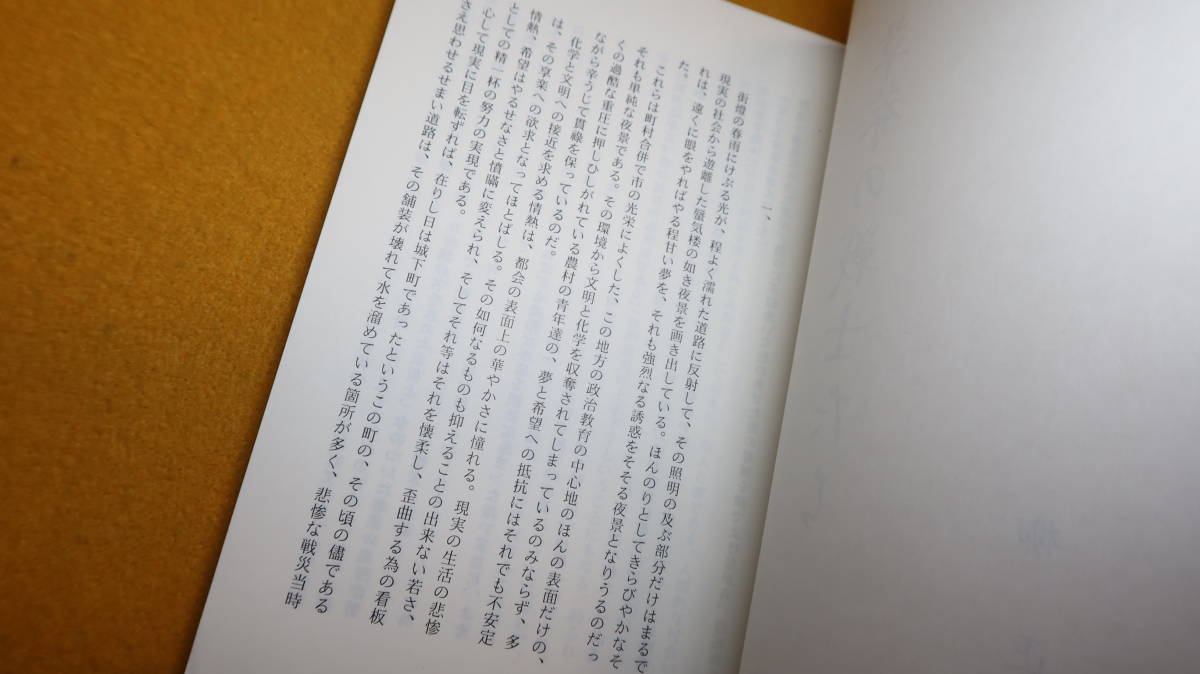 一、
街燈の春雨にけぶる光が、程よく濡れた道路に反射して、その照明の及ぶ部分だけはまるで
現実の社会から遊離した蜃気楼の如き夜景を画き出している。ほんのりとしてきらびやかなそ
れは、遠くに眼をやればやる程甘い夢を、それも強烈なる誘惑をそそる夜景となりうるのだっ
た。
これらは町村合併で市の光栄によくした、この地方の政治教育の中心地のほんの表面だけの、
それも単純な夜景である。その環境から文明と化学を収奪されてしまっているのみならず、多
くの過酷な重圧に押しひしがれている農村の青年達の、夢と希望への抵抗にはそれでも不安定
ながら辛うじて貫祿を保っているのだ。
化学と文明への接近を求める情熱は、都会の表面上の華やかさに憧れる。現実の生活の悲惨
は、その享楽への欲求となってほとばしる。その如何なるものも抑えることの出来ない若さ、
情熱、希望はやるせなさと憤瞞に変えられ、そしてそれ等はそれを懐柔し、歪曲する為の看板
としての精一杯の努力の実現である。
心して現実に目を転ずれば、在りし日は城下町であったというこの町の、その頃の儘である
さえ思わせるせまい道路は、その舗装が壊れて水を溜めている箇所が多く、悲惨な戦災当時